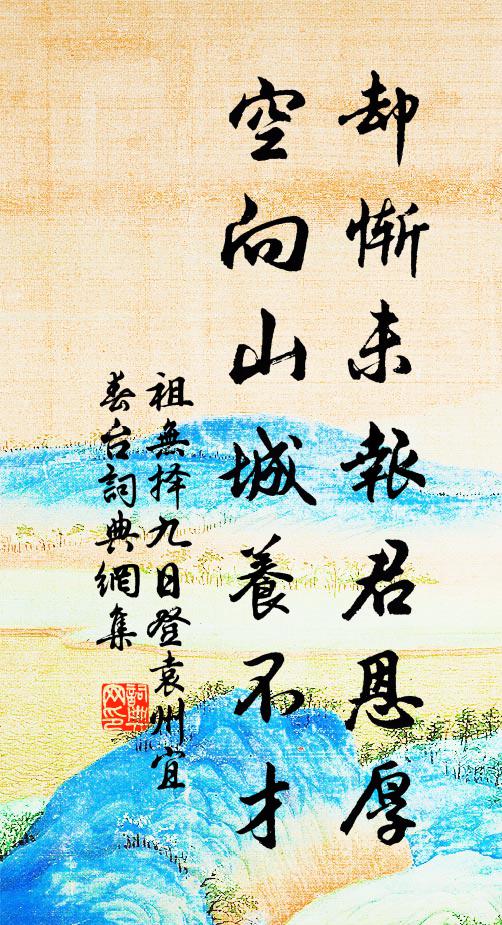 却慚未報君恩厚
空向山城養不才
祖無择九日登袁州宜
春台詞典網集
詞典
网印